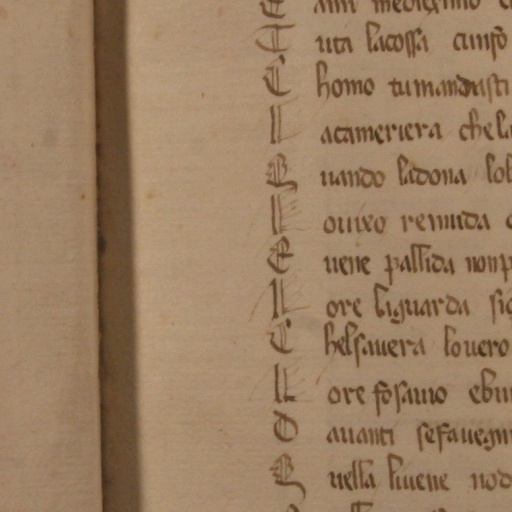 E
T uta lacossa
C homo tumandasti
L acameriera chela
Q uando ladona lol
L ouixo remuda
E uene pallida nonp
L ore laguarda sig
C helsauera louero
L ore fo sauio ebu
D auanti sefauegn
Q uella liuene nod